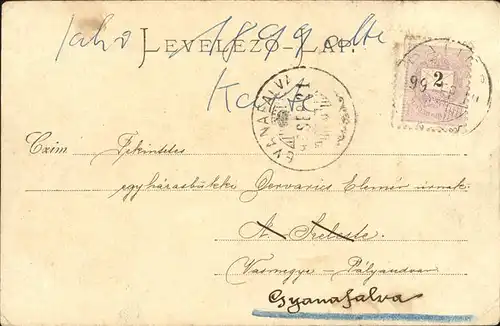 Jahr 1899 alte
Karte
LEVELEZŐ-LAP.
2
99
GYANAFALVA
Czim Tekintetes
egyházasbükki Gervarics Elemér úrnak
A. Szeleste.
Vasmegye - Pályaudvar
Gyanafalva